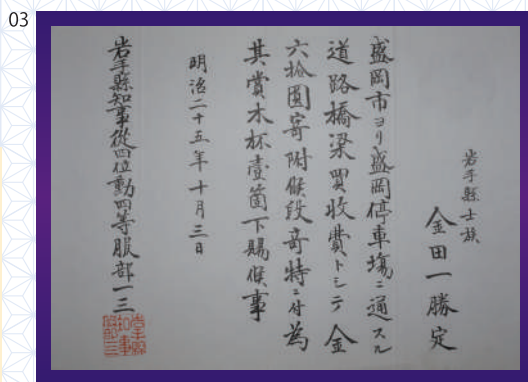 03
岩手縣士族
金田一勝定
盛岡市ヨリ盛岡停車塲ニ通スル
道路橋梁買收費トシテ金
六拾圓寄附候段奇特ニ付為
其賞木杯壹箇下賜候事
明治二十五年十月三日
岩手縣知事從四位勳四等服部一三